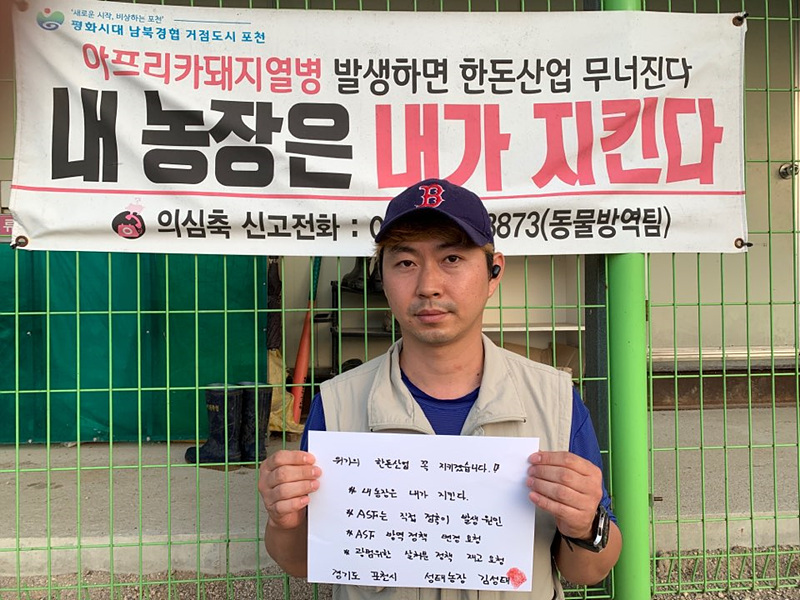 '새로운 시작, 비상하는 포천'
평화시대 남북경협 거점도시 포천
아프리카돼지열병 발생하면 한돈산업 무너진다
내 농장은 내가 지킨다
의심축 신고전화 : 0 8873(동물방역팀)
B
위기의 한돈산업 꼭 지키겠습니다.!!
* 내 농장은 내가 지킨다.
* ASF는 직접 접촉이 발생 원인
* ASF 방역정책 변경 요청
* 광범위한 살처분 정책 재고 요청
경기도 포천시 성태농장 김성태